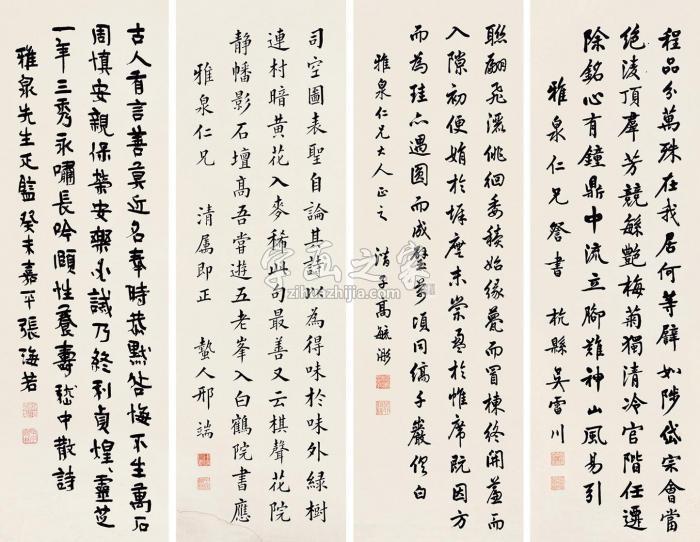 程品分萬殊在我居何等譬如陟岱宗會當
絕淩頂羣芳競縣艷梅菊獨清冷官階任遷
除銘心有鐘鼎中流立腳難神山風易引
雅泉仁兄詧書 杭縣吳雷川
聯翩飛灑徘徊委積始緣甍而冒棟終開簾而
入隙初便娟於墀廡末縈盈於帷席既因方
而為珪亦遇圓而成璧萬頃同縞千巖俱白
雅泉仁兄大人正之 清子高毓浵
司空圖表聖自論其詩以為得味於味外綠樹
連村暗黃花入麥稀此句最善又云棋聲花院
靜幡影石壇高吾嘗遊五老峯入白鶴院書應
雅泉仁兄 清屬即正 蟄人邢端
古人有言善莫近名奉時恭默咎悔不生萬石
周慎安親保榮安樂必誡乃終利貞煌煌靈芝
一年三秀永嘯長吟頤性養壽嵇中散詩
雅泉先生疋監癸未嘉平張海若
字画之家
zihuazhijia.com